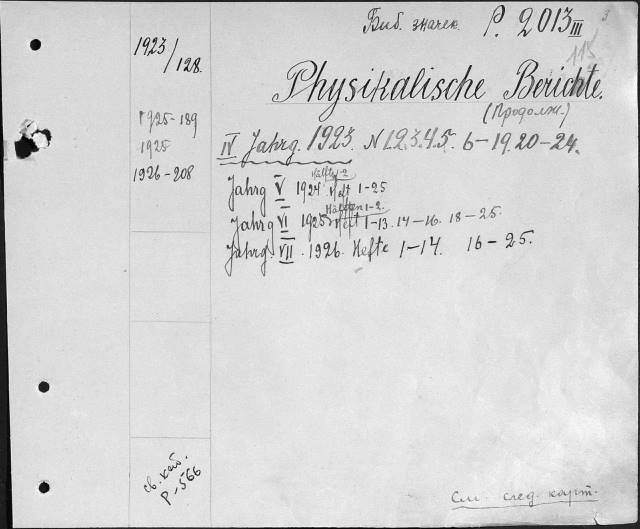 Биб. значек. P. 2013 III
3
115
1923/128.
Physikalische Berichte.
(Продолж.)
1925-189
1925
1926-208
IV Jahrg. 1923. N 1.2.3.4.5. 6-19. 20-24.
Hälfte 1-2
Jahrg V 1924 Heft 1-25
Hälften 1-2.
Jahrg VI 1925 Heft 1-13. 14-16. 18-25.
Jahrg. VII. 1926. Hefte 1-14. 16-25.
св. каб.
P-566
См. след. карт.